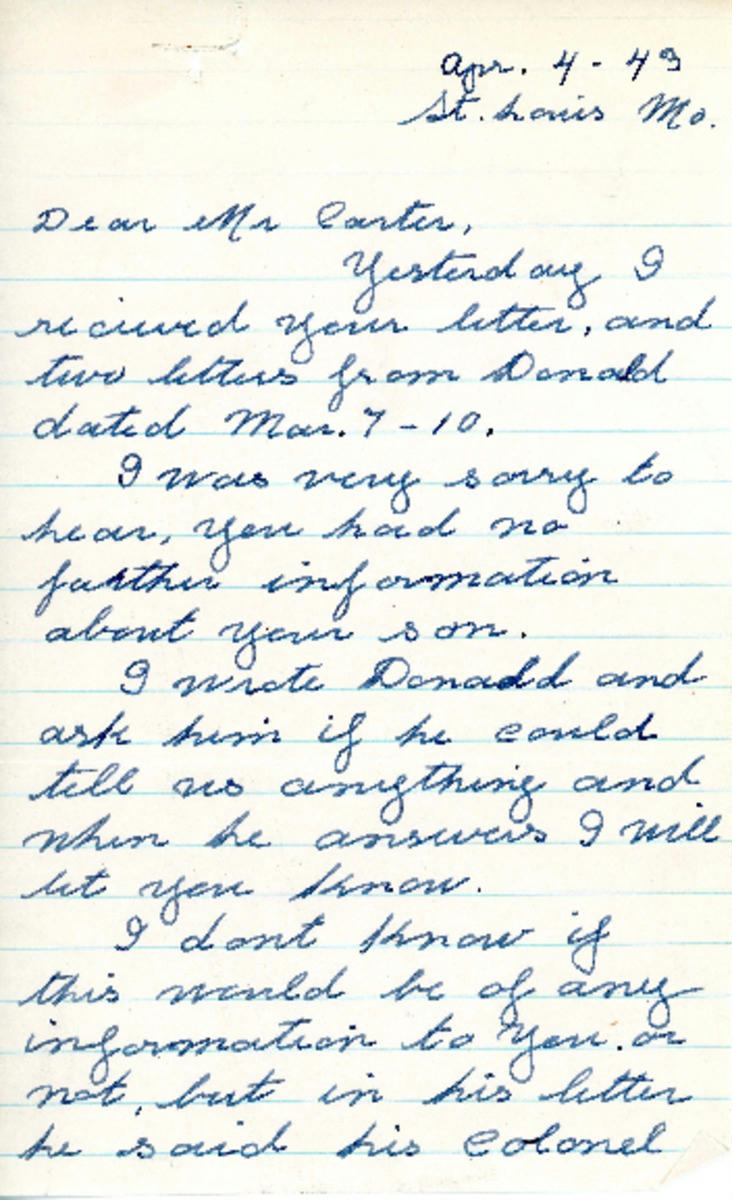 Apr. 4 - 43
St. Louis Mo.
Dear Mr Carter,
Yesterday I
recieved your letter, and
two letters from Donald
dated Mar. 7 - 10.
I was very sorry to
hear, you had no
further information
about your son.
I wrote Donald and
ask him if he could
tell us anything and
when he answers I will
let you know.
I dont know if
this would be of any
information to you. or
not, but in his letter
he said his Colonel